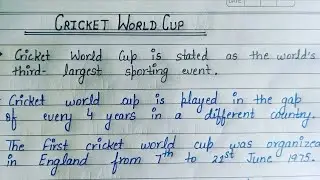 CRICKET WORLD CUP
Cricket World Cup is stated as the world's
third-largest sporting event.
Cricket world cup is played in the gap
of every 4 years in a different country.
The first cricket world cup was organized
in England from 7th to 21st June 1975.